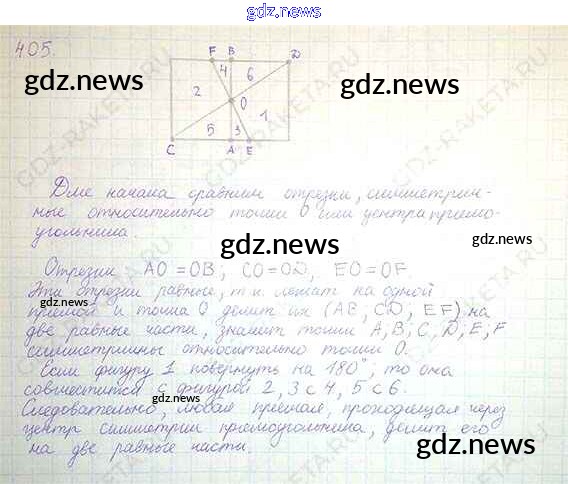 gdz.news
405.
F B D
4 6
2 O 1
5 3
C A E
gdz.news gdz.news
Для начала сравним отрезки, симметрич-
ные относительно точки O или центра прямо-
угольника.
gdz.news
gdz.news
Отрезки AO = OB; CO = OD, EO = OF.
Эти отрезки равные, т.к. лежат на одной
прямой и точка O делит их (AB, CD, EF) на
две равные части, значит точки A, B, C, D, E, F
симметричны относительно точки O.
gdz.news
Если фигуру 1 повернуть на 180°, то она
совместится с фигурой 2, 3 с 4, 5 с 6.
gdz.news
Следовательно, любая прямая, проходящая через
центр симметрии прямоугольника, делит его
на две равные части.
gdz.news
gdz.news
GDZ-RAKETA.RU